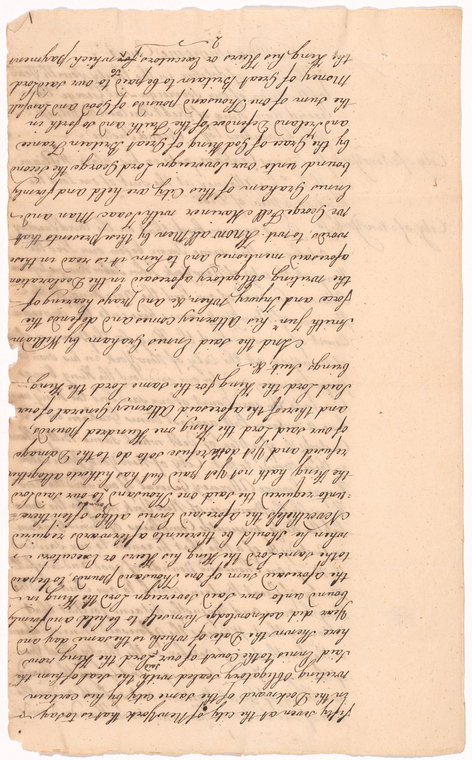 fifty seven at the City of New York that is to say
in the Dockward of the same City by his certain
writing Obligatory sealed with the seal of him the
said Ennis to the Court of our said Lord the King now
here shewn the Date of which is the same day and
Year did acknowledge himself to be held and firmly
bound unto our said Sovereign lord the King in
the aforesaid Sum of one Thousand pounds to be paid
to the same Lord the King his Heirs or Executors
when he should be thereunto afterwards required
Nevertheless the aforesaid Ennis altho often there=
=unto required the said one Thousand pds to our said Lord
the King hath not yet paid but hath hitherto altogether
refused and yet doth refuse so to do to the Damage
of our said Lord the King one Hundred pounds
and thereof the aforesaid Attorney General of our
said Lord the King for the same Lord the King
brings Suit, &c.
And the said Ennis Graham by William
Smith Junr. his Attorney comes and defends the
force and Injury When &c. and prays hearing of
the writing obligatory aforesaid in the Declaration
aforesaid mentioned and to him it is read in these
words to wit. Know all Men by these presents that
We George Fell Mariner with Isaac Man and
Ennis Graham of this City are held and firmly
bound unto Our Sovereign Lord George the Second
by the Grace of God King of Great Britain France
and Ireland Defender of the Faith and so forth in
the sum of one Thousand pounds of Good and Lawfull
Money of Great Britain to be paid to our said Lord
the King his Heirs or Executors for which payment
2